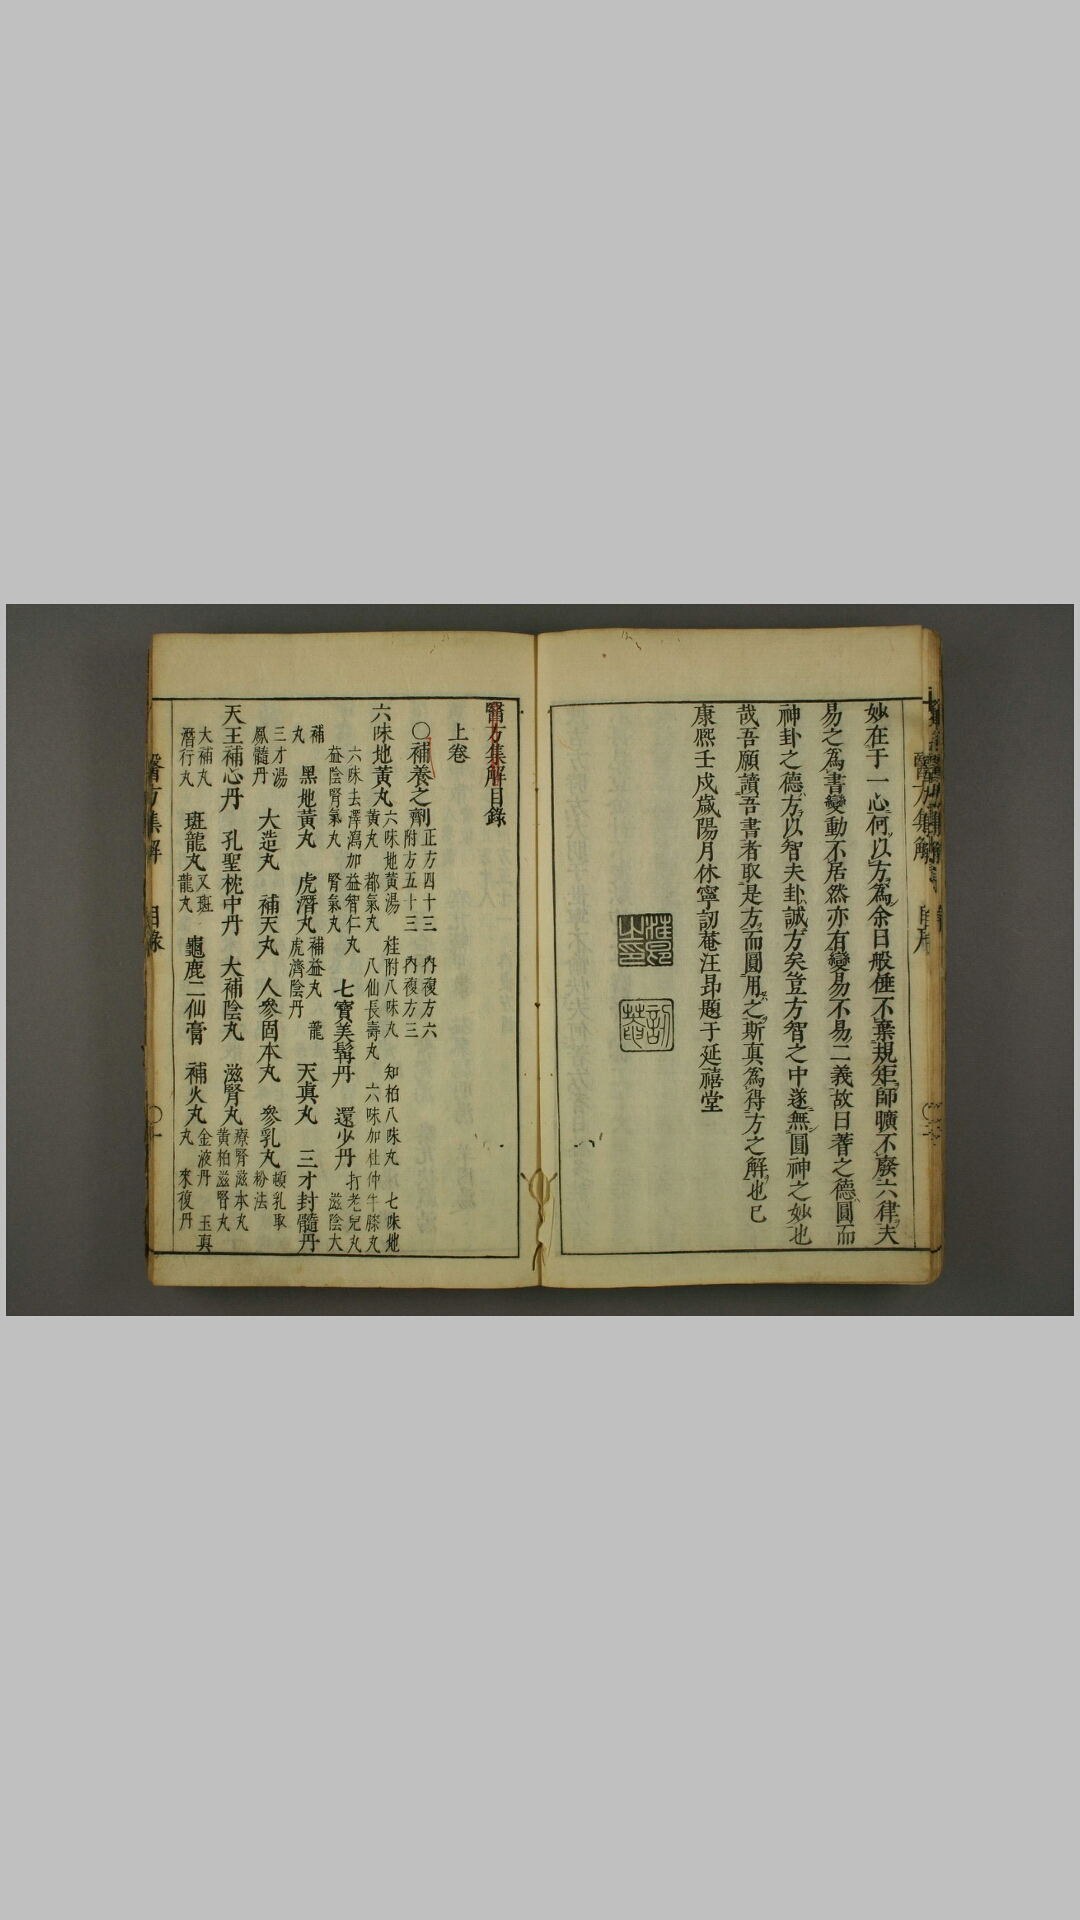 妙在于一心何以方為余曰般倕不棄規矩師曠不廢六律夫
易之為書變動不居然亦有變易不易二義故曰蓍之德圓而
神卦之德方以智夫卦誠方矣豈方智之中遂無圓神之妙也
哉吾願讀吾書者取是方而圓用之斯真為得方之解也已
康熙壬戌歲陽月休寧訒菴汪昂題于延禧堂
汪昂之印
訒菴
醫方集解目錄
上卷
○補養之劑 正方四十三 內複方六
附方五十三 內複方三
六味地黃丸 六味地黃湯 桂附八味丸 知柏八味丸 七味地
黃丸 都氣丸 八仙長壽丸 六味加杜仲牛膝丸
六味去澤瀉加益智仁丸
益陰腎氣丸 腎氣丸
七寶美髯丹 還少丹 打老兒丸
滋陰大
補
丸
黑地黃丸 虎潛丸 補益丸 龍
虎濟陰丹
天真丸 三才封髓丹
三才湯
鳳髓丹
大造丸 補天丸 人參固本丸 參乳丸 頓乳取
粉法
天王補心丹 孔聖枕中丹 大補陰丸 滋腎丸 療腎滋本丸
黃柏滋腎丸
大補丸
潛行丸
斑龍丸 又斑
龍丸
龜鹿二仙膏 補火丸 金液丹 玉真
丸 來復丹
醫方集解
目錄
○一
醫方集解